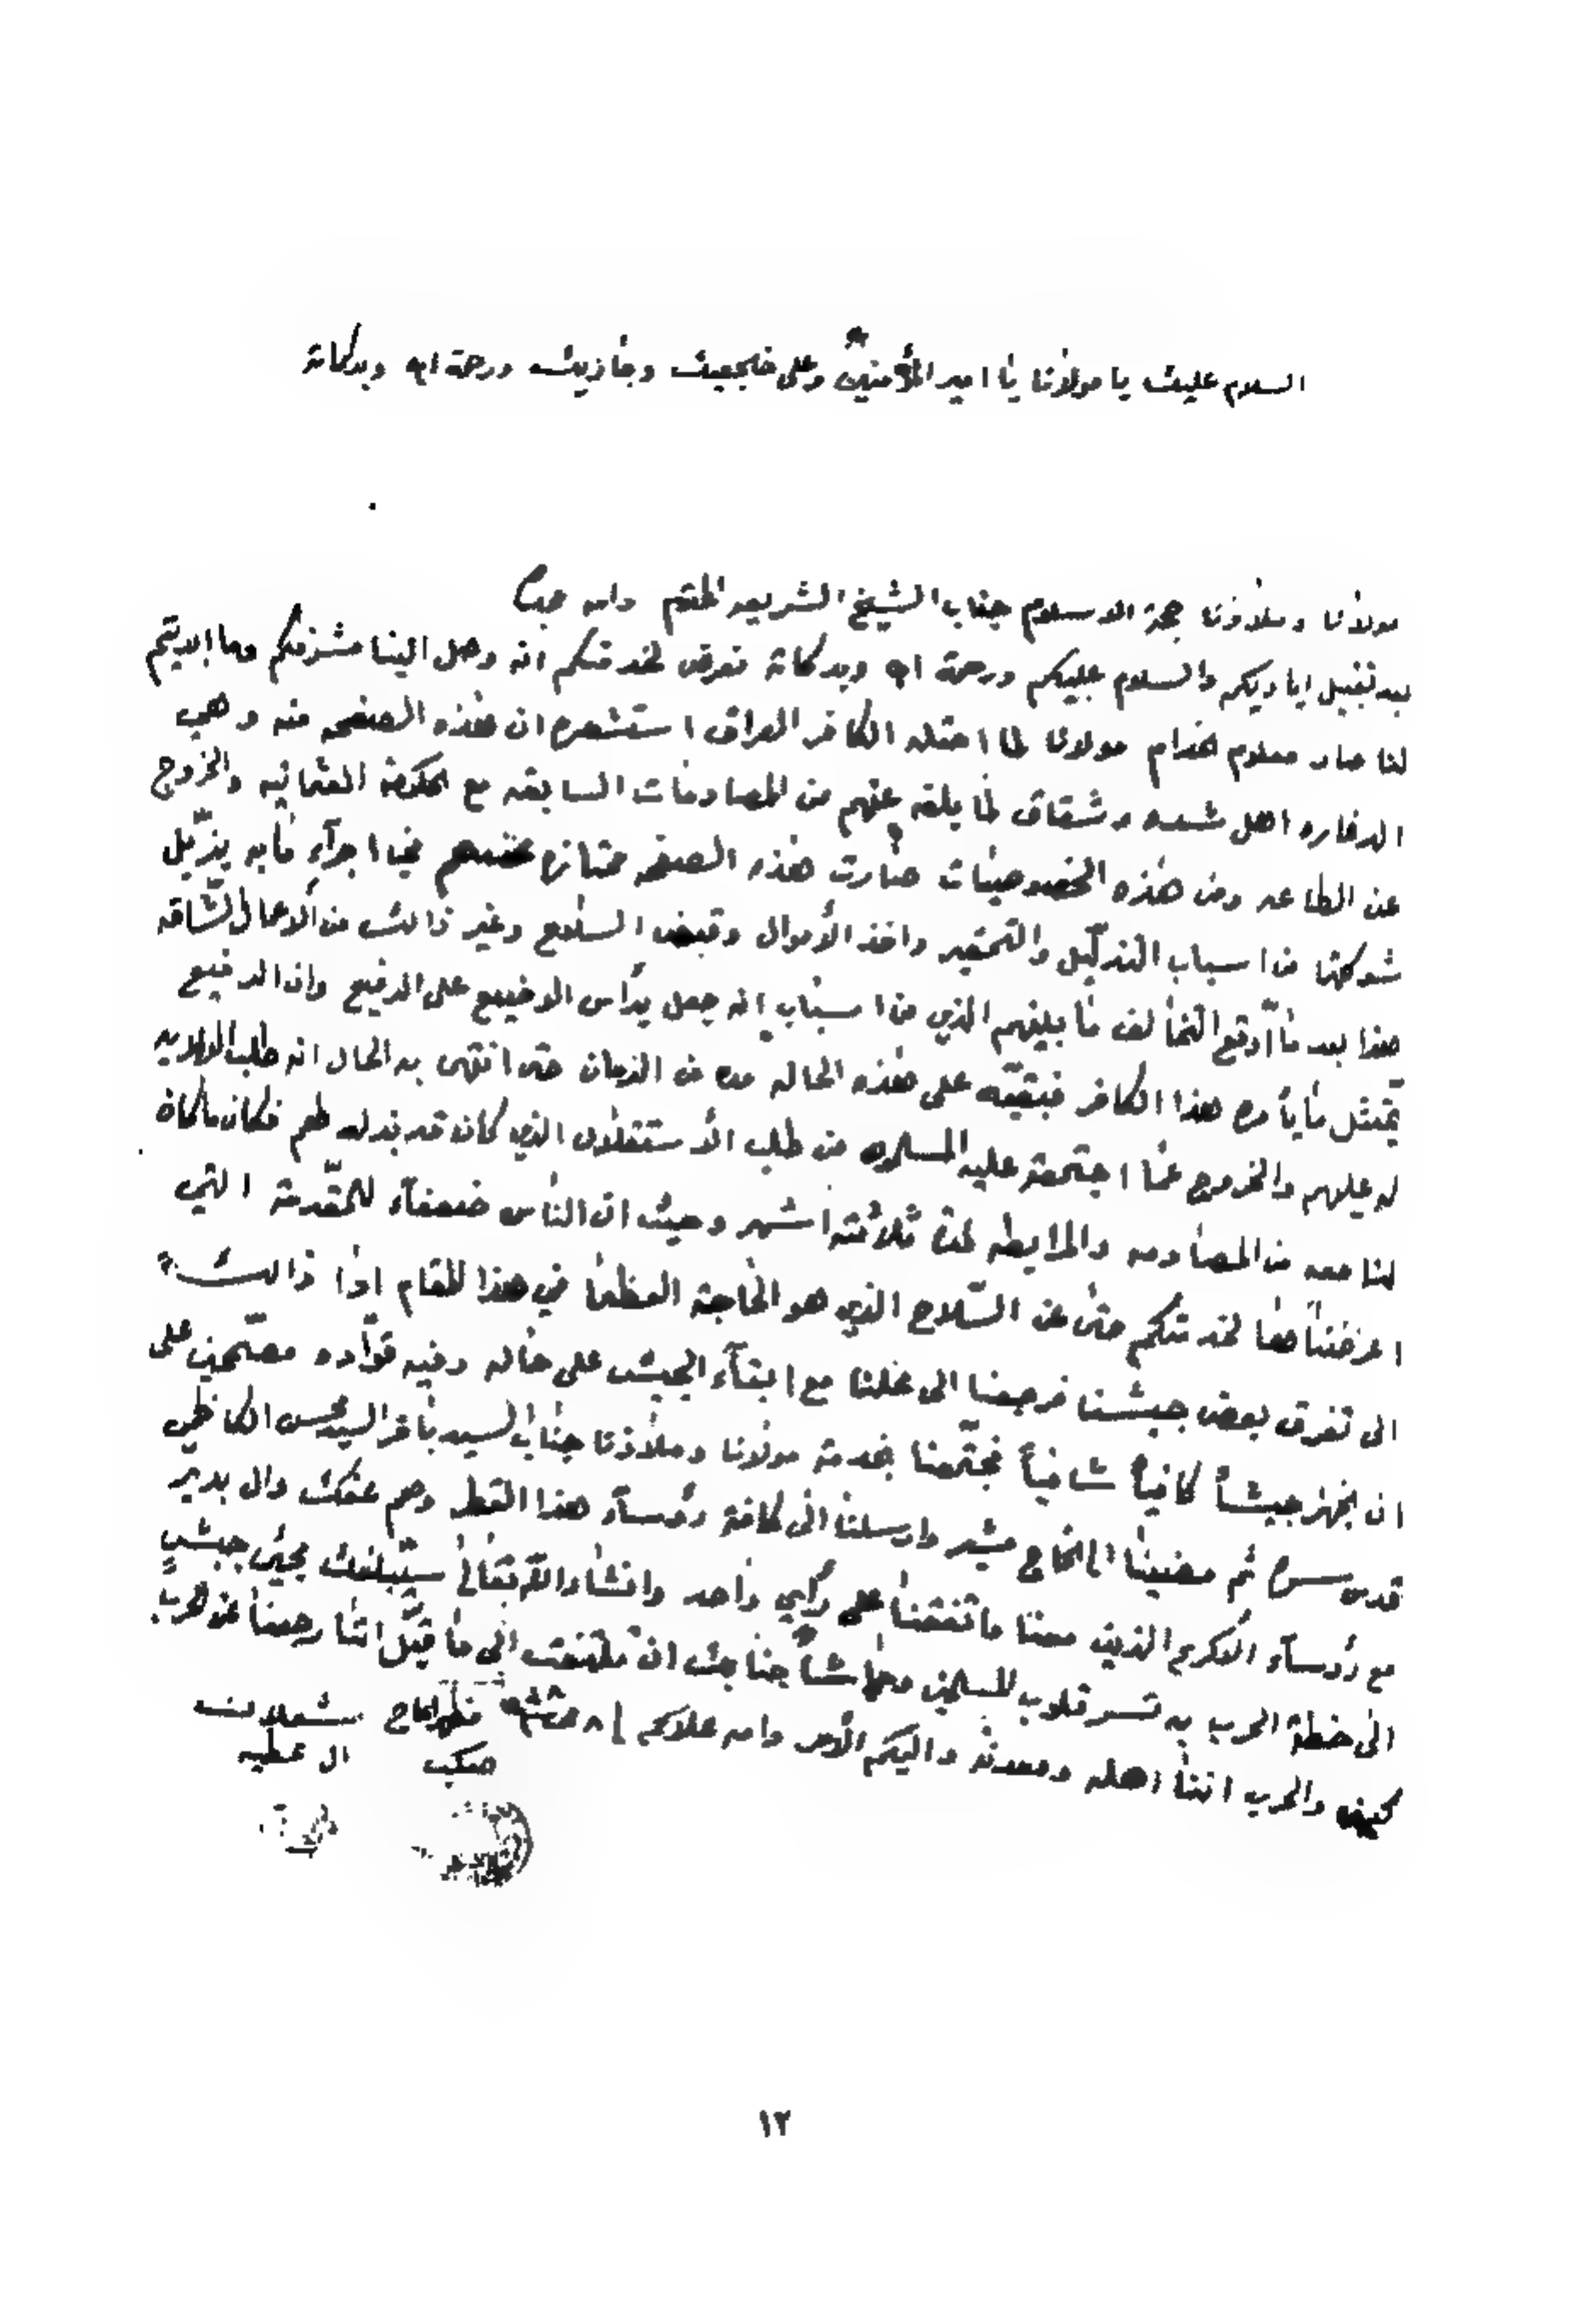 السلام عليك يا مولانا يا امير المؤمنين وعلى ضجيعيك وجاريك ورحمة الله وبركاته
مولانا وملاذنا حجة الاسلام جناب الشيخ الشريعه المحترم دام
بعد تقبيل اياديكم والسلام عليكم ورحمة الله وبركاته نعرض لخدمتكم انه وصل الينا مشرفكم وما ابديتم
لنا صار معلوم لخدام مولانا لما احتله الكافر العراق استشعر ان هذه الصفحه منه وهي
اهل وشقاق لما بلغه عنهم من المصادمات السابقه مع الحكومة العثمانيه والخروج
عن الطاعه ومن هذه الخصوصيات صارت هذه الصفحه عندهم اجرآء ما به يذيل
شوكتها من اسباب التذليل والتحقير واخذ الأموال وقبض السلاح وغير ذالك من الأعمال الشاقه
هذا بعد ما أوقع التخالف ما بينهم الذي من اسبابه انه جعل يرأس الوضيع على الرفيع وان الرفيع
يمتثل ما يأمره هذا الكافر فبقيت على هذه الحاله مده من الزمان حتى انتهى به الحال انه طلب
له عليهم والخروج عما اجتمعت عليه من طلب الأستقلال الذي كان قد بذله لهم فكان ما كان
لنا معه من المصادمه والمرابطه لمدة ثلاثة اشهر وحيث ان الناس ضعفآء للمقدمة التي
اعرضناها لخدمتكم حتى عن السلاح الذي هو الحاجة العظما في هذا المقام ادا ذالك
الى تفرق بعض جيشنا فرجعنا الى محلنا مع ابقآء الجيش على حاله وفيه قواده مصممين على
ان نجهز جيشاً كافياً شافياً فجتمعنا بخدمة مولانا وملاذنا جناب السيد باقر السيد محسن الكاظمي
قدس سره ثم مضينا الى الحاج وارسلنا الى كافة رؤسآء هذا القطر وهم عفك وال بدير
مع رؤسآء الذين معنا فاتفقنا على رأي واحد وانشاء الله تعالى سيبلغك مجيئ جيشي
الى خطة الحرب به تسر قلوب المسلمين وحاشا جنابك ان تلتفت الى ما قيل اننا رجعنا عن الحرب
كيف والحرب اننا اهله ومعدنه واليكم الأمر دام علاكم
الحاج شعلان
ال عطيه
١٢